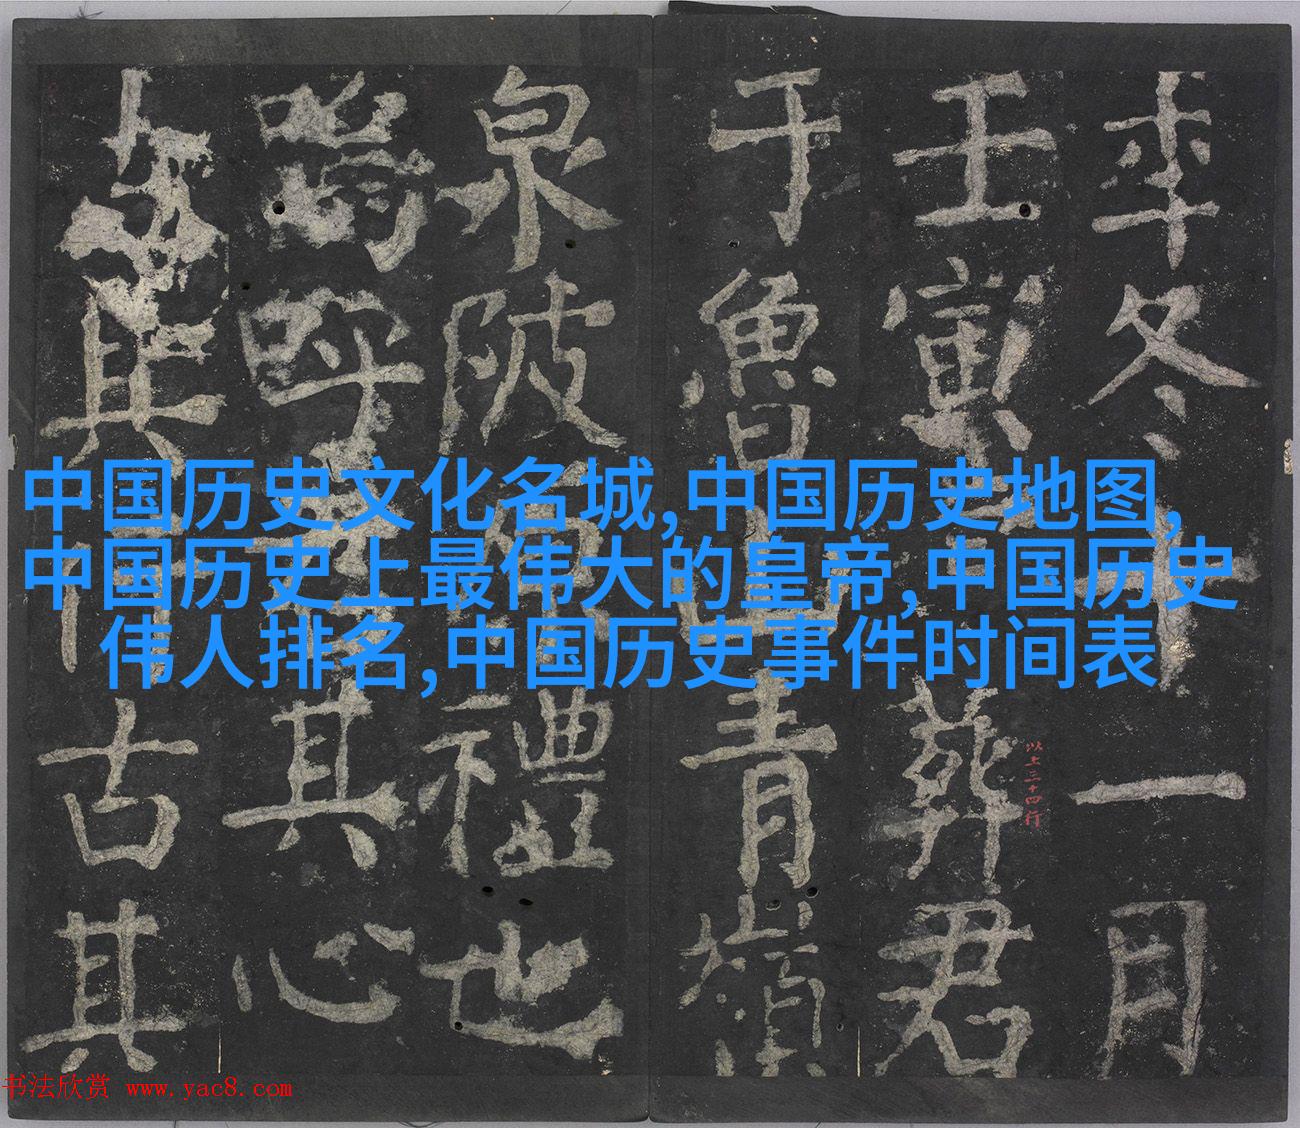 中国历史文化名城,中国历史地图,
中国历史上最伟大的皇帝,中国历史
伟人排名,中国历史事件时间表
年冬十一月
壬寅葬君
以上三十四行
于魯山青嶺
泉陂原禮也
嗚呼其心
其行古其
书法欣赏 www.yac8.com